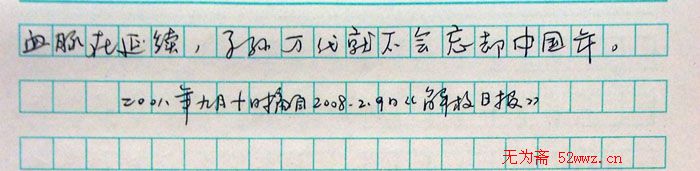 血脉在延续，子孙万代就不会忘却中国年。
二〇〇八.年九月十日摘自2008.2.9日《解放日报》
无为斋 52wwz.cn